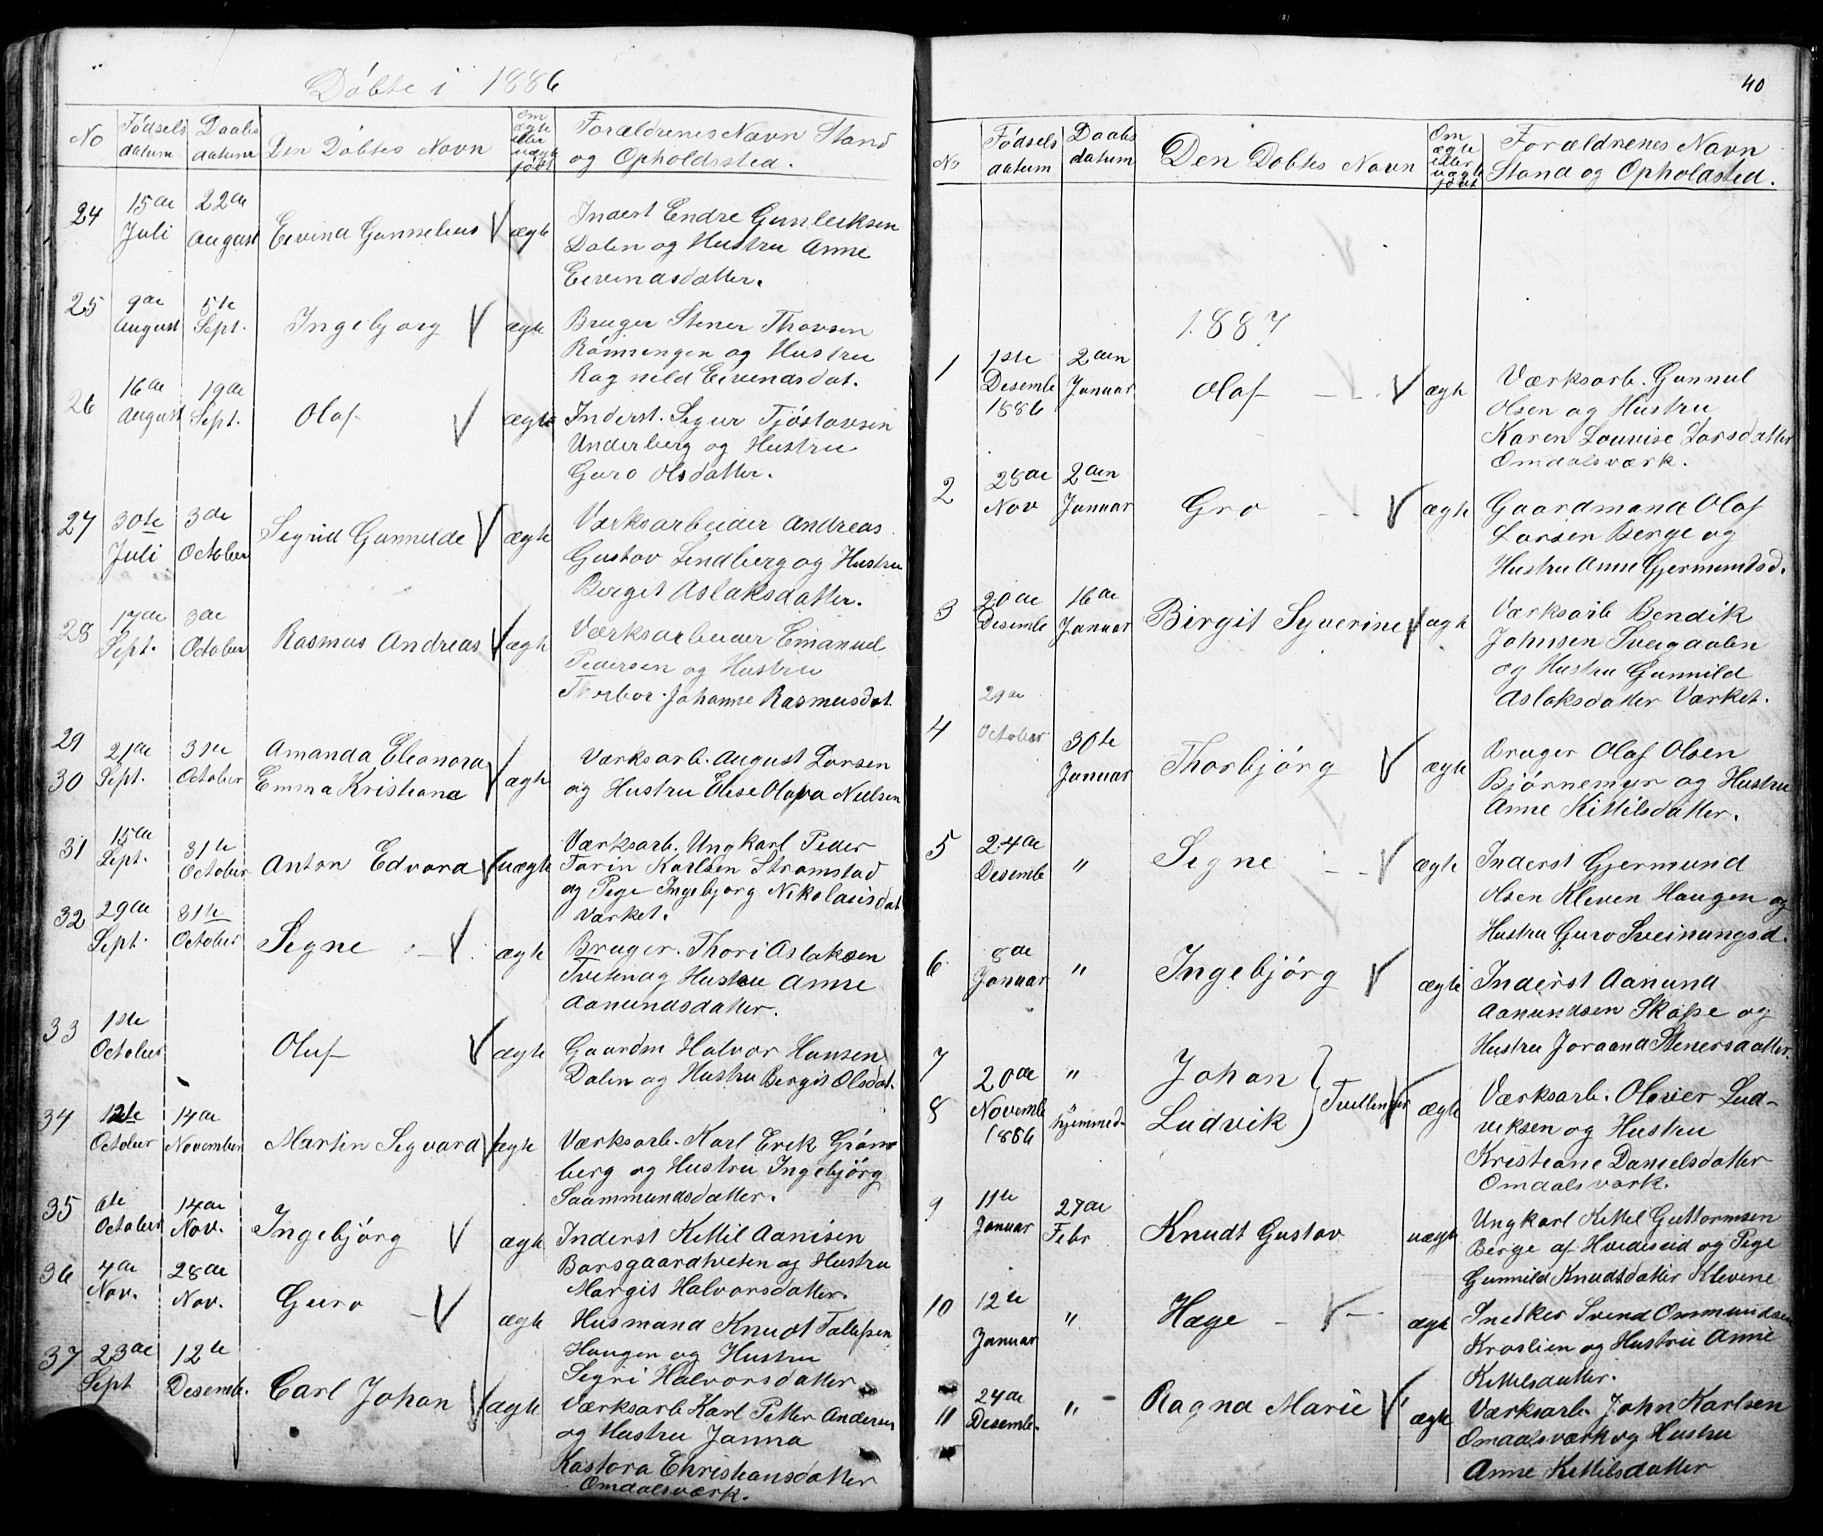 Döbte i 1886
No
Födsels datum
Daabs datum
Den Döbtes Navn
Om ægte eller uægte födt
Forældrenes Navn Stand
og Opholdssted.
24 15de Juli 22de August Eivind Gunnelius V ægte Inderst Endre Gunleiksen
Dalen og Hustru Anne
Eivindsdatter.
25 9de August 5te Sept. Ingebjorg V ægte Bruger Stener Thovsen
Rönningen og Hustru
Ragnild Eivendsdat.
26 16de August 19de Sept. Olaf V ægte Inderst. Segur Tjöstovsen
Underberg og Hustru
Guro Olsdatter.
27 30te Juli 3de October Segrid Gunnilde V ægte Værksarbeider Andreas
Gustav Lindberg og Hustru
Bergit Aslaksdatter.
28 17de Sept. 3de October Rasmus Andreas V ægte Værksarbeider Emanuel
Pedersen og Hustru
Thorbor Johanne Rasmusdat.
29 21de Sept. 31te October Amanda Eleonora V ægte Værksarb. August Larsen
30 Emma Kristiana og Hustru Elise Olava Nielsen
31 15de Sept. 31te October Anton Edvard V uægte Værksarb. Ungkarl Peder
Tarin Karlsen Stromstad
og Pige Ingebjorg Nikolaisdat
Værket.
32 29de Sept. 31te October Segne V ægte Bruger. Thor Aslaksen
Tveten og Hustru Anne
Aanundsdatter.
33 1ste October Oluf V ægte Gaardm Halvor Hansen
Dalen og Hustru Bergit Olsdat.
34 12te October 14de November Martin Segvard V ægte Værksarb. Karl Erik Grön-
berg og Hustru Ingebjörg
Saammundsdatter.
35 6te October 14de Nov. Ingebjörg V ægte Inderst Kittil Aanisen
Borsgaardtveten og Hustru
Margit Halvorsdatter.
36 4de Nov. 28de Nov. Guro V ægte Husmand Knudt Tallefsen
Haugen og Hustru
Segri Halvorsdatter
37 23de Sept 12te Desemb. Carl Johan V ægte Værksarb Karl Petter Andersen
og Hustru Janna
Kastora Christiansdatter
Omdalsværk.
40
No
Födsels datum
Daabs datum
Den Döbtes Navn
Om ægte eller uægte födt
Forældrenes Navn
Stand og Opholdsted.
V
1887
1 1ste Desemb 1886 2den Januar Olaf V ægte Værksarb. Gunnul
Olsen og Hustru
Karen Louvise Larsdatter
Omdalsværk.
2 25de Nov 2den Januar Gro V ægte Gaardmand Olaf
Larsen Berge og
Hustru Anne Gjermundsd.
3 20de Desemb 16de Januar Birgit Syverine V ægte Værksarb Bendik
Johnsen Sveigdalen
og Hustru Gunnild
Aslaksdatter Værket.
4 29de October 30te Januar Thorbjörg V ægte Bruger Olaf Olsen
Bjørnemyr og Hustru
Anne Kittilsdatter.
5 24de Desemb " Segne V ægte Inderst Gjermund
Olsen Kleven Haugen og
Hustru Guro Sveinungsd.
6 8de Januar " Ingebjörg V ægte Inderst Aanund
Aanundsen Skafse og
Hustru Joraand Stenersdatter
7 20de Novemb 1886 " hjemmed. Johan } Tvillinger V ægte Værksarb. Olevier Lud-
8 Ludvik viksen og Hustru
Kristiane Danielsdatter
Omdalsværk.
9 11te Januar 27de Febr Knudt Gustav uægte Ungkarl Kittel Guttormsen
Berge af Hvideseid og Pige
Gunnild Knudtsdatter Klevene
10 12te Januar " Hæge V ægte Snedker Svend Ommundsen
Kroslien og Hustru Anne
Kittilsdatter.
11 24de Desemb. " Ragna Marie V ægte Værksarb. John Karlsen
Omdalsværk og Hustru
Anne Kittilsdatter